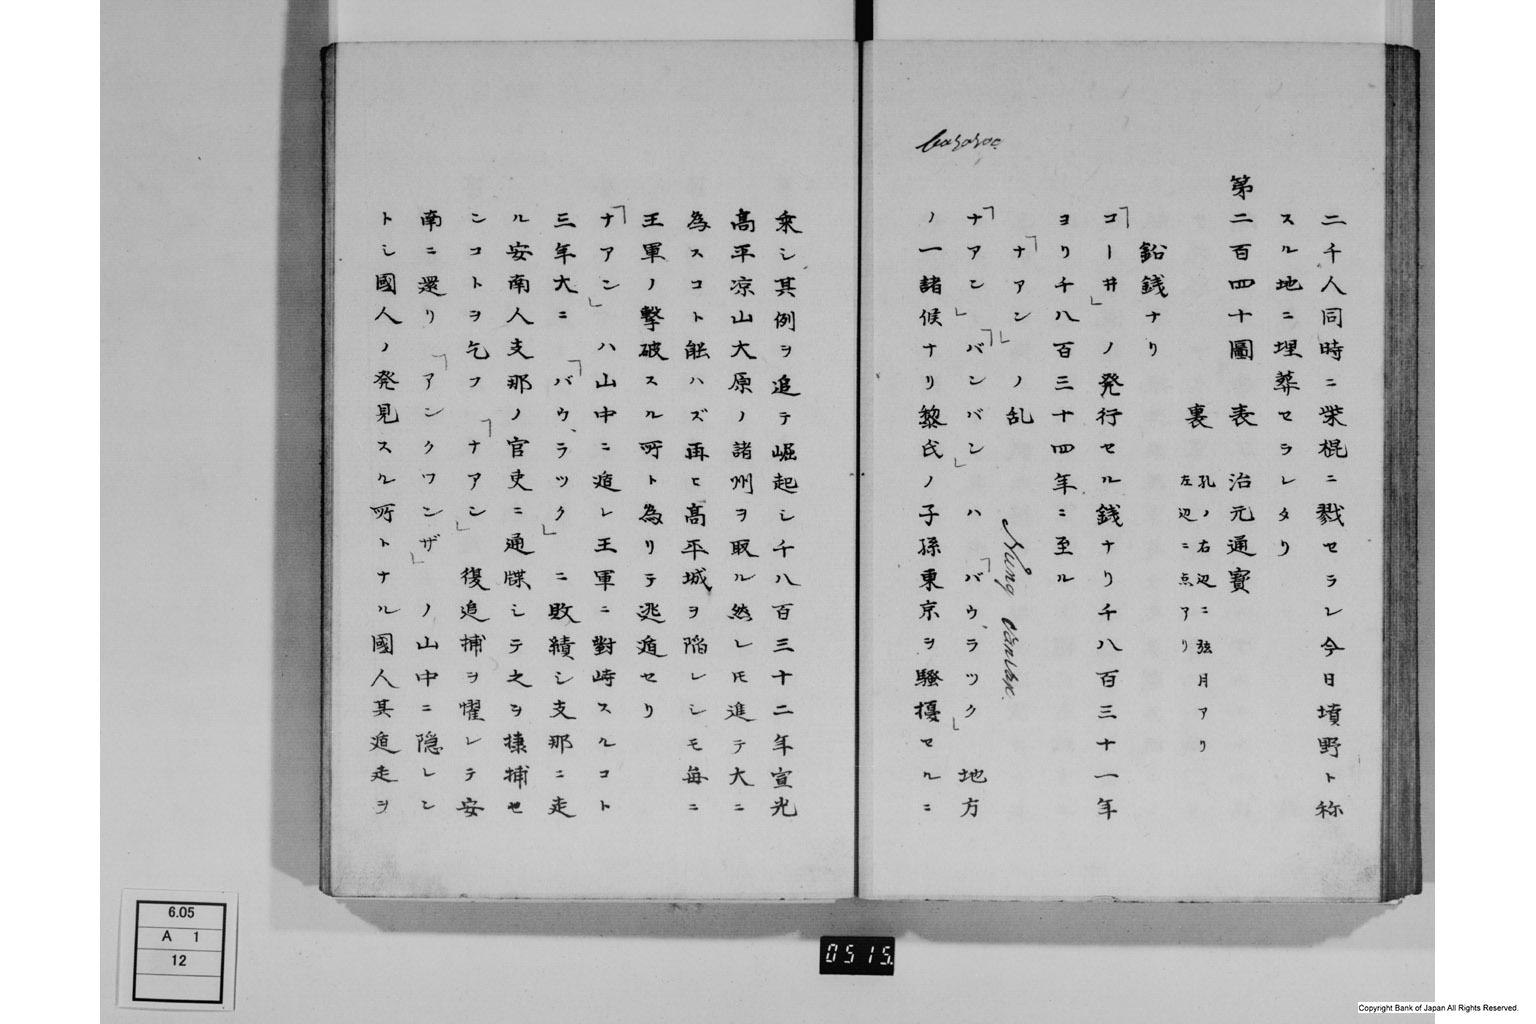 二千人同時ニ柴棍ニ戮セラレ今日墳野ト称
スル地ニ埋葬セラレタリ
第二百四十圖 表 治元通寳
裏 孔ノ右辺ニ弦月アリ
左辺ニ点アリ
鉛銭ナリ
「コー井」ノ発行セル銭ナリ千八百三十一年
ヨリ千八百三十四年ニ至ル
「ナアン」ノ乱
Nung vanvan.
「ナアン」「バンバン」ハ「バウラック」地方
ノ一諸候ナリ黎氏ノ子孫東京ヲ騒擾セルニ
乗シ其例ヲ追テ崛起シ千八百三十二年宣光
高平凉山大原ノ諸州ヲ取ル然レ𪜈進テ大ニ
為スコト能ハズ再ヒ高平城ヲ陷レシモ毎ニ
王軍ノ撃破スル所ト為リテ逃遁セリ
「ナアン」ハ山中ニ遁レ王軍ニ對峙スルコト
三年大ニ「バウラック」ニ敗績シ支那ニ走
ル安南人支那ノ官吏ニ通牒シテ之ヲ捕セ
ンコトヲ乞フ「ナアン」復追捕ヲ懼レテ安
南ニ還リ「アンクワンザ」ノ山中ニ隠レン
トシ國人ノ発見スル所トナル國人其遁走ヲ
6.05
A 1
12
0515
Copyright Bank of Japan All Rights Reserved.